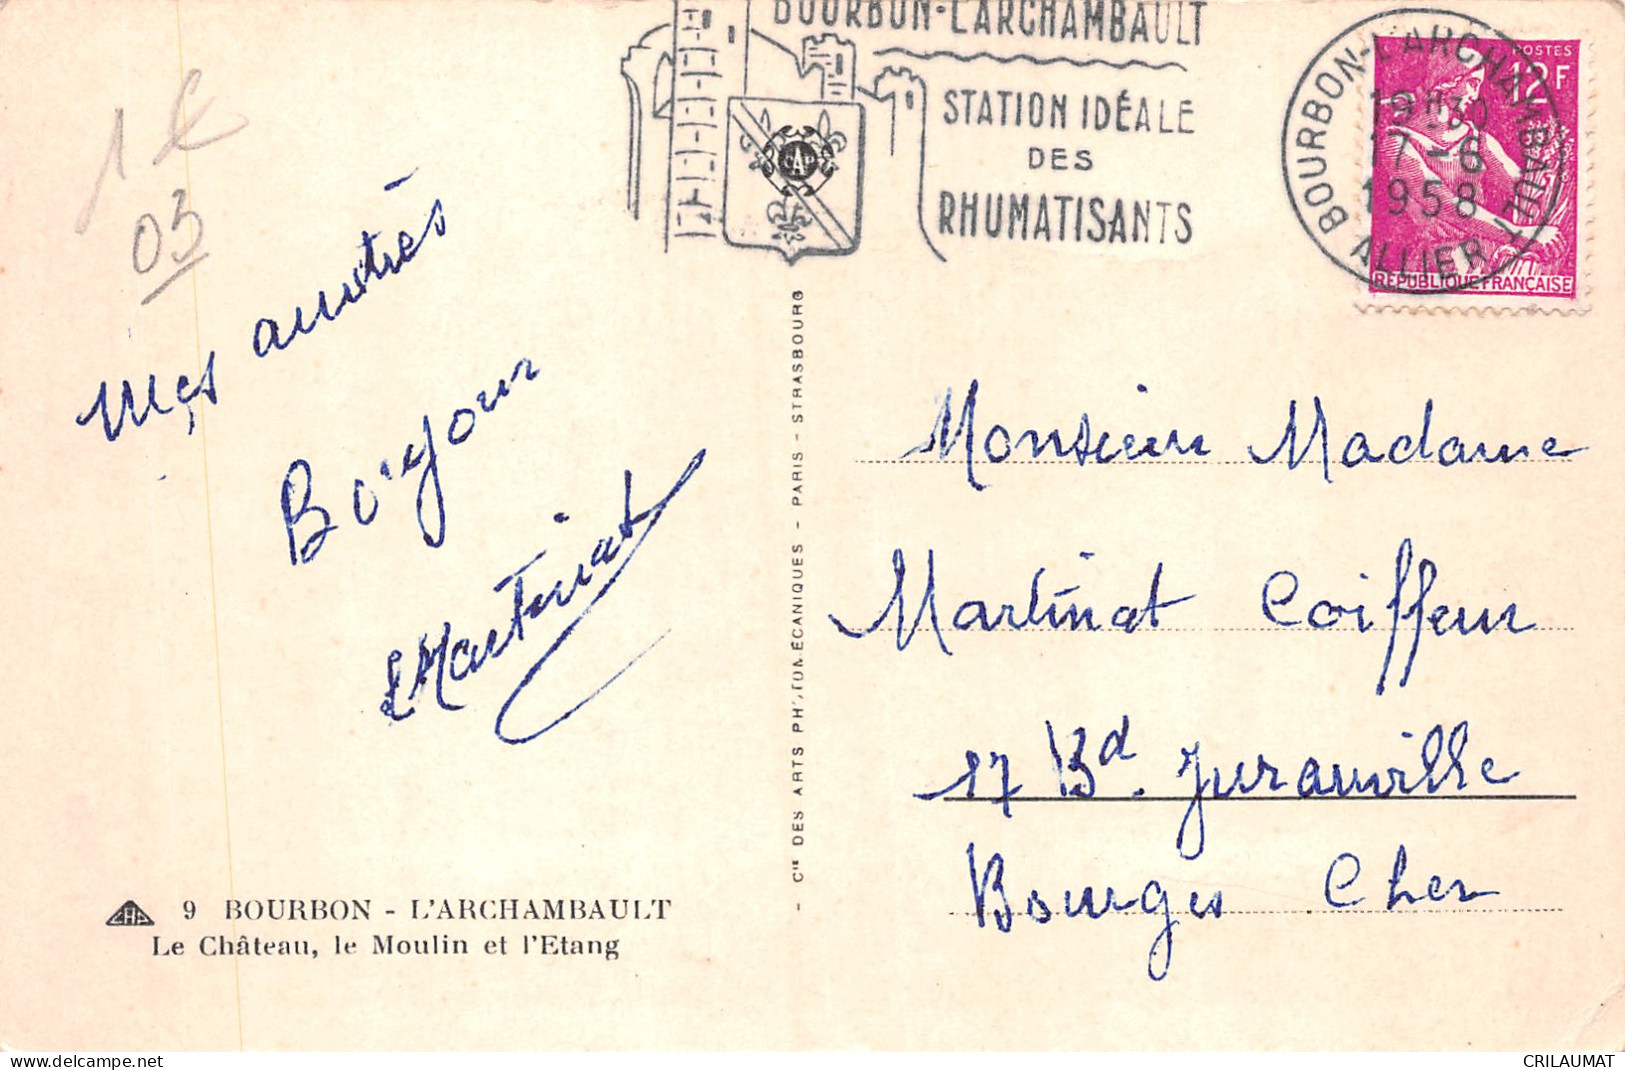 BOURBON-L'ARCHAMBAULT
STATION IDÉALE
DES
RHUMATISANTS
CAP
BOURBON-L'ARCHAMBAULT
ALLIER
19H30
17-6
1958
POSTES
12F
REPUBLIQUE FRANÇAISE
1€
03
Mes amitiés
Bonjour
Martinat
Monsieur Madame
Martinat Coiffeur
17 Bd. Juranville
Bourges Cher
- Cie DES ARTS PHOTOMÉCANIQUES - PARIS - STRASBOURG
CAP 9 BOURBON - L'ARCHAMBAULT
Le Château, le Moulin et l'Etang
delcampe.net
CRILAUMAT